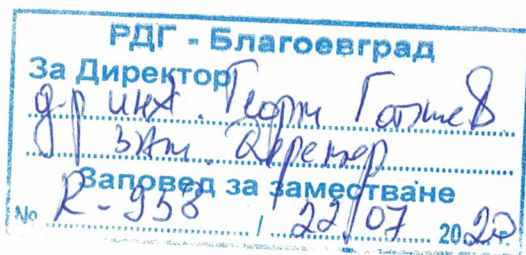 РДГ - Благоевград
За Директор
д-р инж. Георги Гогушев
Зам. Директор
Заповед за заместване
№ R-958 / 22/07 2020г.